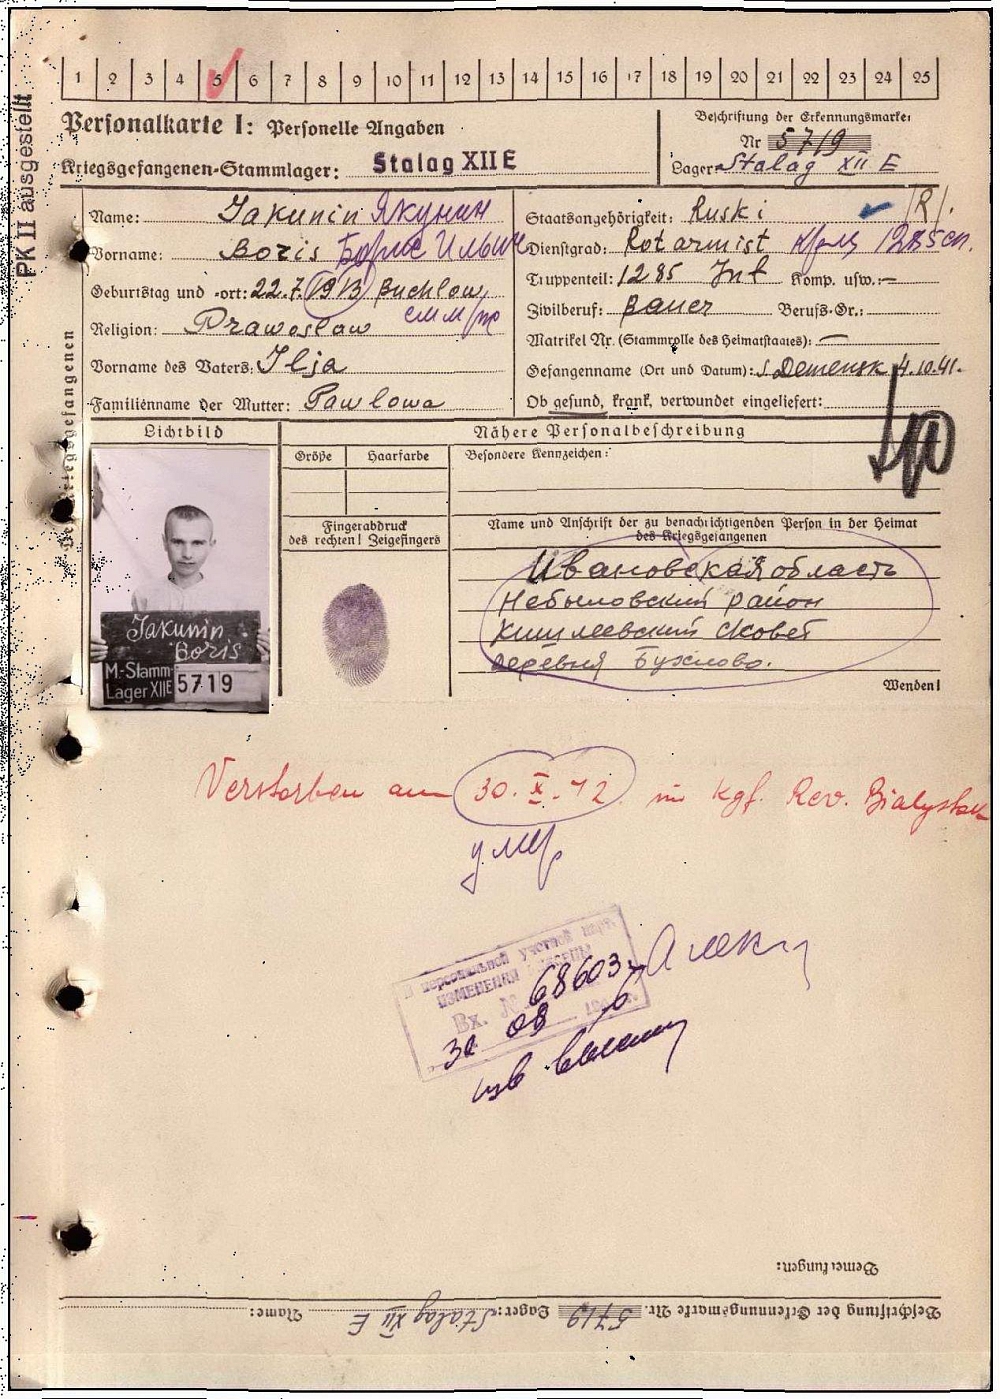 1 2 3 4 5 6 7 8 9 10 11 12 13 14 15 16 17 18 19 20 21 22 23 24 25
PK II ausgestellt
Personalkarte I: Personelle Angaben
Kriegsgefangenen-Stammlager: Stalag XII E
Beschriftung der Erkennungsmarke
Nr 5719
Lager: Stalag XII E
des Kriegsgefangenen
Name: Jakunin Якунин
Vorname: Boris Борис Ильич
Geburtstag und -ort: 22.7.1913 Buchlow
Religion: Prawoslaw
Vorname des Vaters: Ilja
Familienname der Mutter: Pawlowa
Staatsangehörigkeit: Ruski /R/.
Dienstgrad: Rotarmist 1285 сп.
Truppenteil: 1285 Inf Komp. usw.: —
Zivilberuf: Bauer Berufs-Gr.:
Matrikel Nr. (Stammrolle des Heimatstaates): —
Gefangenname (Ort und Datum): S. Demensk 4.10.41.
Ob gesund, krank, verwundet eingeliefert:
Lichtbild
Nähere Personalbeschreibung
Größe
Haarfarbe
Besondere Kennzeichen:
Fingerabdruck
des rechten! Zeigefingers
Name und Anschrift der zu benachrichtigenden Person in der Heimat
des Kriegsgefangenen
Ивановская область
Небыловский район
Кишлеевский сковет
деревня Бухлово.
Wenden!
Jakunin
Boris
M.-Stamm-
Lager XIIE 5719
Verstorben am 30.X.42 im Kgf. Rev. Bialystok
умер
В персональный учетный
ИЗМЕНЕНИЯ ВНЕСЕНЫ
Вх. № 68603
30 08
Bemerkungen:
Beschriftung der Erkennungsmarke Nr. 5719 Lager: Stalag XII E Name: